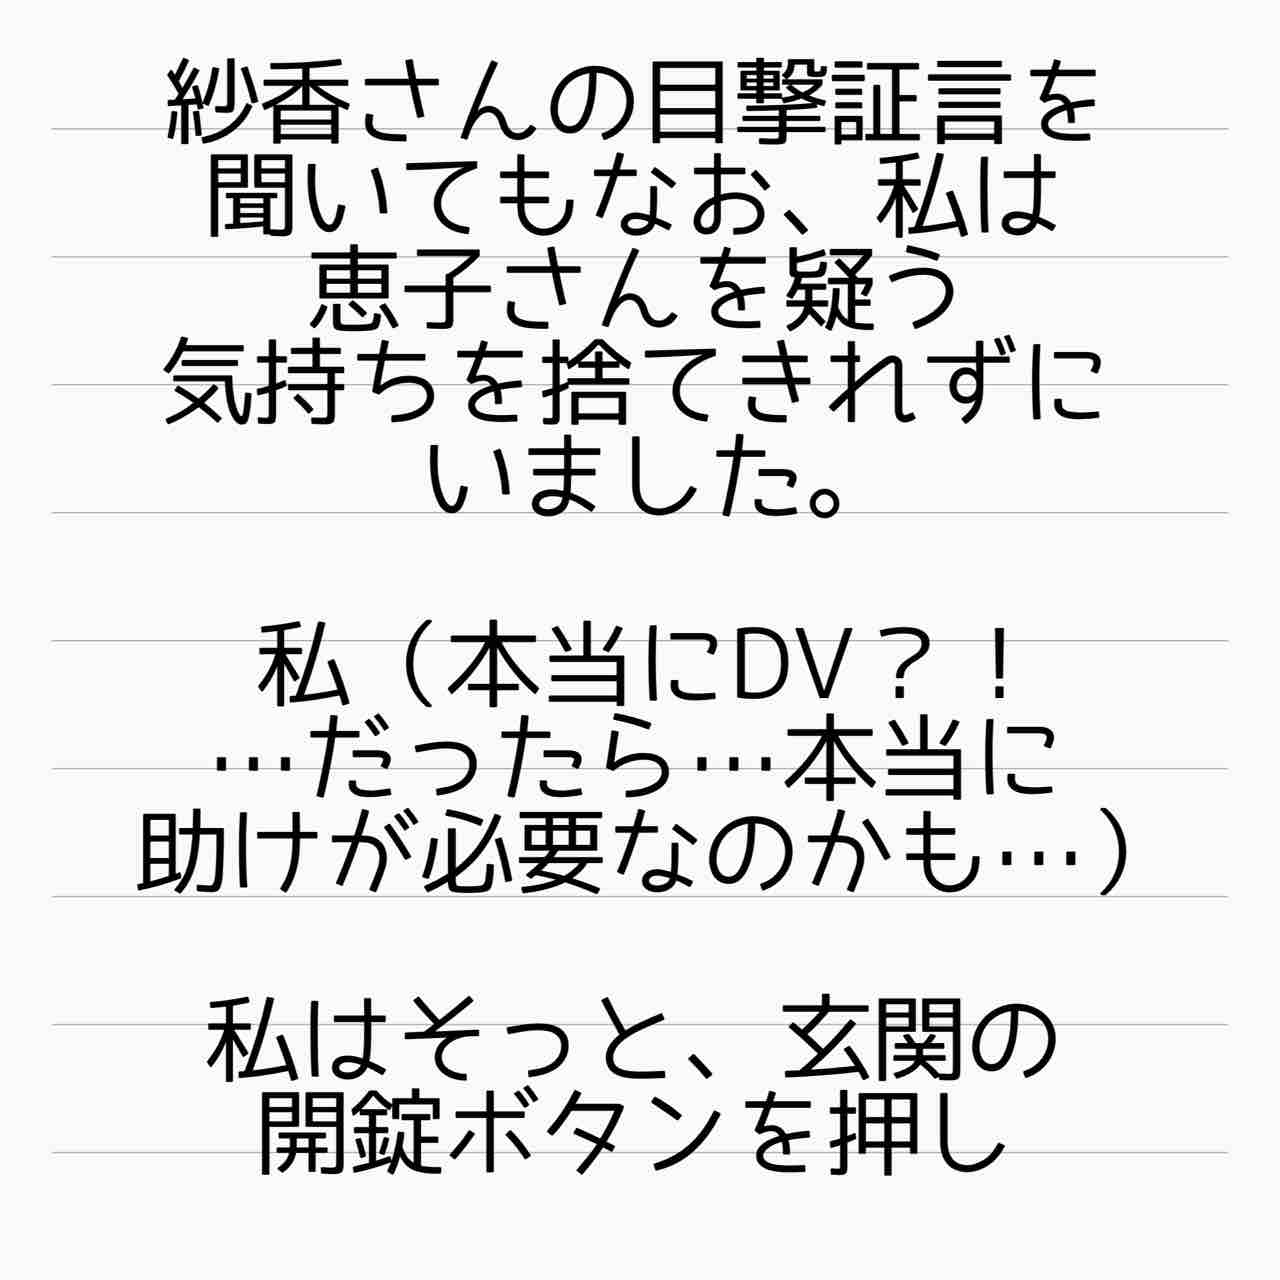 紗香さんの目撃証言を
聞いてもなお、私は
恵子さんを疑う
気持ちを捨てきれずに
いました。
私（本当にDV？！
…だったら…本当に
助けが必要なのかも…）
私はそっと、玄関の
開錠ボタンを押し